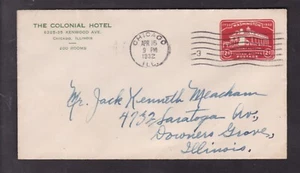 THE COLONIAL HOTEL
KENWOOD AVE.
CHICAGO, ILLINOIS
CHICAGO
APR
9 PM
1932
ILL.
3
Mr. Jack Kenneth Meacham
4732 Saratoga Av,
Downers Grove,
Illinois.